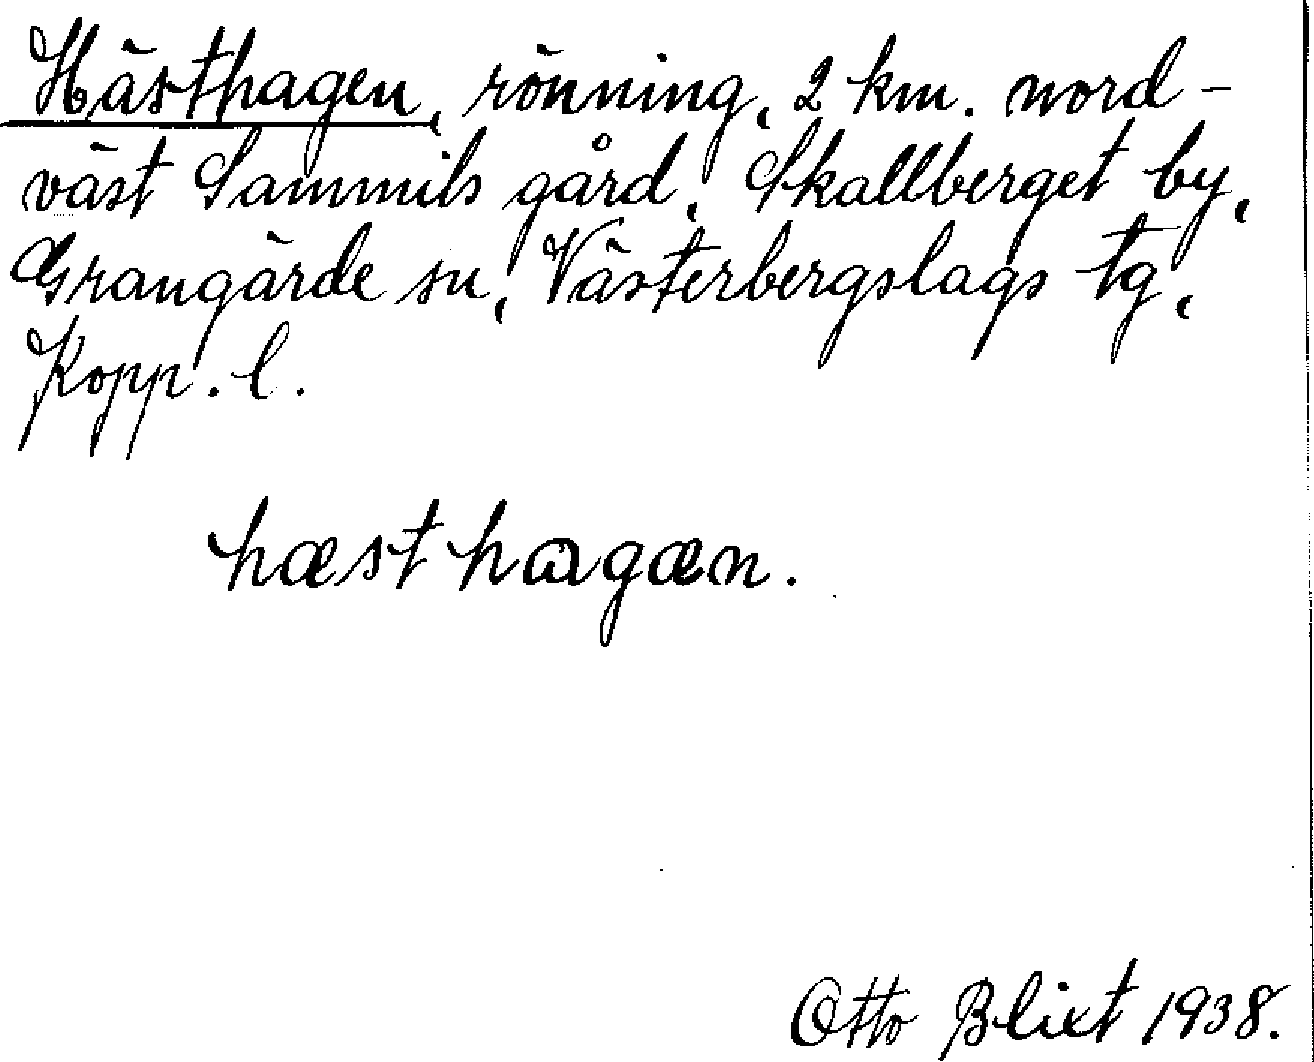 Hästhagen, rönning, 2 km. nord-
väst Sammils gård, Skallberget by,
Grangärde sn, Västerbergslags tg,
Kopp. l.
hæsthagæn.
Otto Blixt 1938.